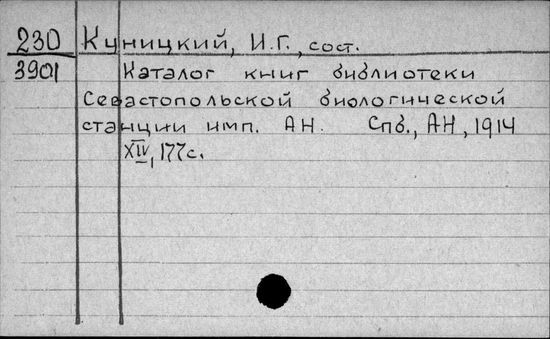 230 Куницкий, И.Г., сост.
3901 Каталог книг библиотеки
Севастопольской биологической
станции имп. АН. Спб., АН, 1914
XIV, 177с.